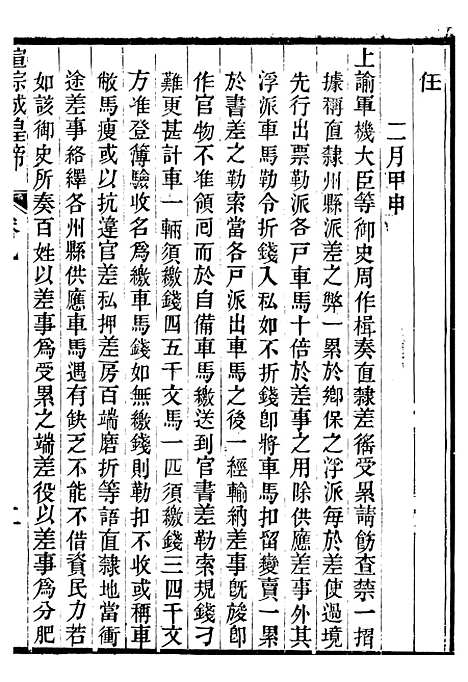 任
二月甲申
上諭軍機大臣等御史周作楫奏直隸差徭受累請飭查禁一摺
據稱直隸州縣派差之弊一累於鄉保之浮派每於差使過境
先行出票勒派各戸車馬十倍於差事之用除供應差事外其
浮派車馬勒令折錢入私如不折錢卽將車馬扣留變賣一累
於書差之勒索當各戸派出車馬之後一經輸納差事旣竣卽
作官物不准領囘而于自備車馬繳送到官書差勒索規錢刁
難更甚計車一輛須繳錢四五千文馬一匹須繳錢三四千文
方准登簿驗收名爲繳車馬錢如無繳錢則勒扣不收或稱車
敝馬瘦或以抗違官差私押差房百端磨折等語直隸地當衝
途差事絡繹各州縣供應車馬遇有缺乏不能不借資民力若
如該御史所奏百姓以差事爲受累之端差役以差事爲分肥
宣宗成皇帝